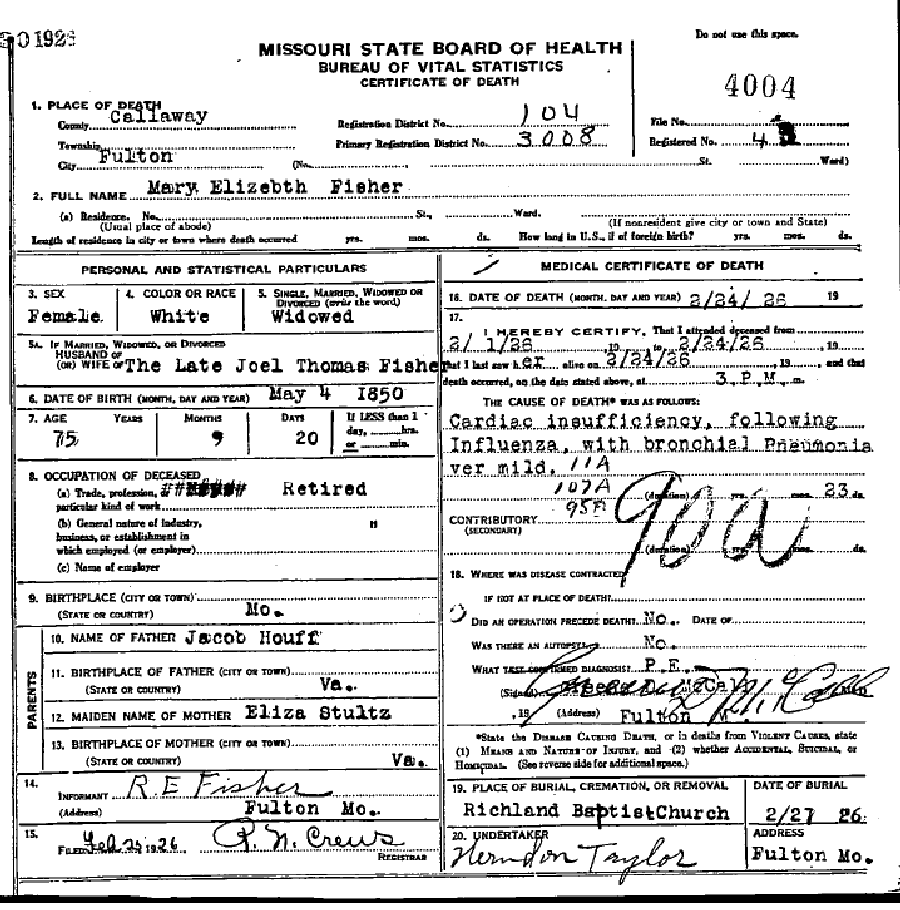 1926
Do not use this space.
MISSOURI STATE BOARD OF HEALTH
BUREAU OF VITAL STATISTICS
CERTIFICATE OF DEATH
4004
1. PLACE OF DEATH
County Callaway
Registration District No. 104
File No.
Township
Primary Registration District No. 3008
Registered No. 4
City Fulton (No. St. Ward)
2. FULL NAME Mary Elizebth Fisher
(a) Residence. No. St., Ward.
(Usual place of abode) (If nonresident give city or town and State)
Length of residence in city or town where death occurred yrs. mos. ds. How long in U.S., if of foreign birth? yrs. mos. ds.
PERSONAL AND STATISTICAL PARTICULARS
3. SEX 4. COLOR OR RACE 5. SINGLE, MARRIED, WIDOWED OR
DIVORCED (write the word)
Female White Widowed
5A. IF MARRIED, WIDOWED, OR DIVORCED
HUSBAND OF
(OR) WIFE OF The Late Joel Thomas Fisher
6. DATE OF BIRTH (MONTH, DAY AND YEAR) May 4 1850
7. AGE YEARS MONTHS DAYS If LESS than 1
day, hrs.
75 9 20 or min.
8. OCCUPATION OF DECEASED
(a) Trade, profession, or
particular kind of work Retired
(b) General nature of industry, "
business, or establishment in
which employed (or employer)
(c) Name of employer
9. BIRTHPLACE (CITY OR TOWN)
(STATE OR COUNTRY) Mo.
PARENTS
10. NAME OF FATHER Jacob Houff
11. BIRTHPLACE OF FATHER (CITY OR TOWN)
(STATE OR COUNTRY) Va.
12. MAIDEN NAME OF MOTHER Eliza Stultz
13. BIRTHPLACE OF MOTHER (CITY OR TOWN)
(STATE OR COUNTRY) Va.
14.
INFORMANT R E Fisher
(Address) Fulton Mo.
15.
FILED Feb 25 1926 R. N. Crews
REGISTRAR
MEDICAL CERTIFICATE OF DEATH
16. DATE OF DEATH (MONTH, DAY AND YEAR) 2/24/ 26 19
17.
I HEREBY CERTIFY, That I attended deceased from
2/ 1/26 , 19 to 2/24/26 , 19
that I last saw h er alive on 2/24/26 , 19 , and that
death occurred, on the date stated above, at 3 P.M. m.
THE CAUSE OF DEATH* WAS AS FOLLOWS:
Cardiac insufficiency, following
Influenza, with bronchial Pneumonia
ver mild. 11A
107A
(duration) yrs. mos. 23 ds.
95B
90a
CONTRIBUTORY
(SECONDARY)
(duration) yrs. mos. ds.
18. WHERE WAS DISEASE CONTRACTED
IF NOT AT PLACE OF DEATH?
DID AN OPERATION PRECEDE DEATH? No. DATE OF
WAS THERE AN AUTOPSY? No.
WHAT TEST CONFIRMED DIAGNOSIS? P.E.
(Signed) M.D.
, 19 (Address) Fulton Mo.
*State the DISEASE CAUSING DEATH, or in deaths from VIOLENT CAUSES, state
(1) MEANS AND NATURE OF INJURY, and (2) whether ACCIDENTAL, SUICIDAL, or
HOMICIDAL. (See reverse side for additional space.)
19. PLACE OF BURIAL, CREMATION, OR REMOVAL DATE OF BURIAL
Richland Baptist Church 2/27 26.
20. UNDERTAKER ADDRESS
Herndon Taylor Fulton Mo.